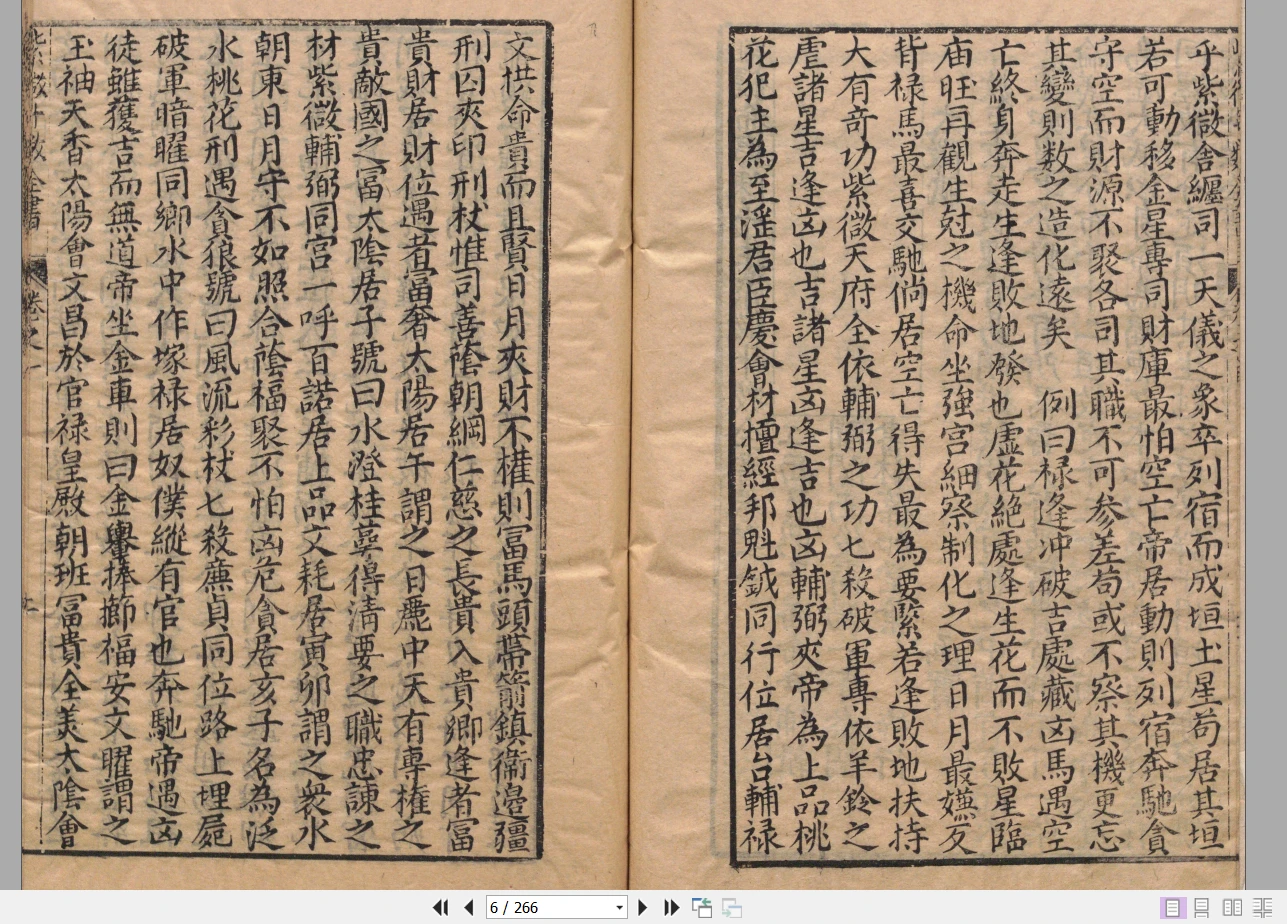 乎紫微舍纏司一天儀之象卒列宿而成垣土星苟居其垣
若可動移金星專司財庫最怕空亡帝居動則列宿奔馳貪
守空而財源不聚各司其職不可参差苟或不察其機更忘
其變則数之造化遠矣　例曰禄逢冲破吉處藏凶馬遇空
亡終身奔走生逢敗地發也虚花絶處逢生花而不敗星臨
庙旺再觀生尅之機命坐強宫細察制化之理日月最嫌反
背禄馬最喜交馳倘居空亡得失最為要緊若逢敗地扶持
大有奇功紫微天府全依輔弼之功七殺破軍專依羊鈴之
虐諸星吉逢凶也吉諸星凶逢吉也凶輔弼夾帝為上品桃
花犯主為至淫君臣慶會材擅經邦魁鉞同行位居台輔禄
文拱命貴而且賢日月夾財不權則冨馬頭帶箭鎮衞邊疆
刑囚夾印刑杖惟司善蔭朝綱仁慈之長貴入貴卿逢者冨
貴財居財位遇者富奢太陽居午謂之日麗中天有專權之
貴敵國之冨太陰居子號曰水澄桂萼得清要之職忠諫之
材紫微輔弼同宫一呼百諾居上品文耗居寅卯謂之衆水
朝東日月守不如照合蔭福聚不怕凶危貪居亥子名為泛
水桃花刑遇貪狼號曰風流彩杖七殺廉貞同位路上埋屍
破軍暗曜同鄉水中作塚禄居奴僕縱有官也奔馳帝遇凶
徒雖獲吉而無道帝坐金車則曰金轝捧擳福安文曜謂之
玉袖天香太陽會文昌於官禄皇殿朝班冨貴全美太陰會
卷之一
6 / 266